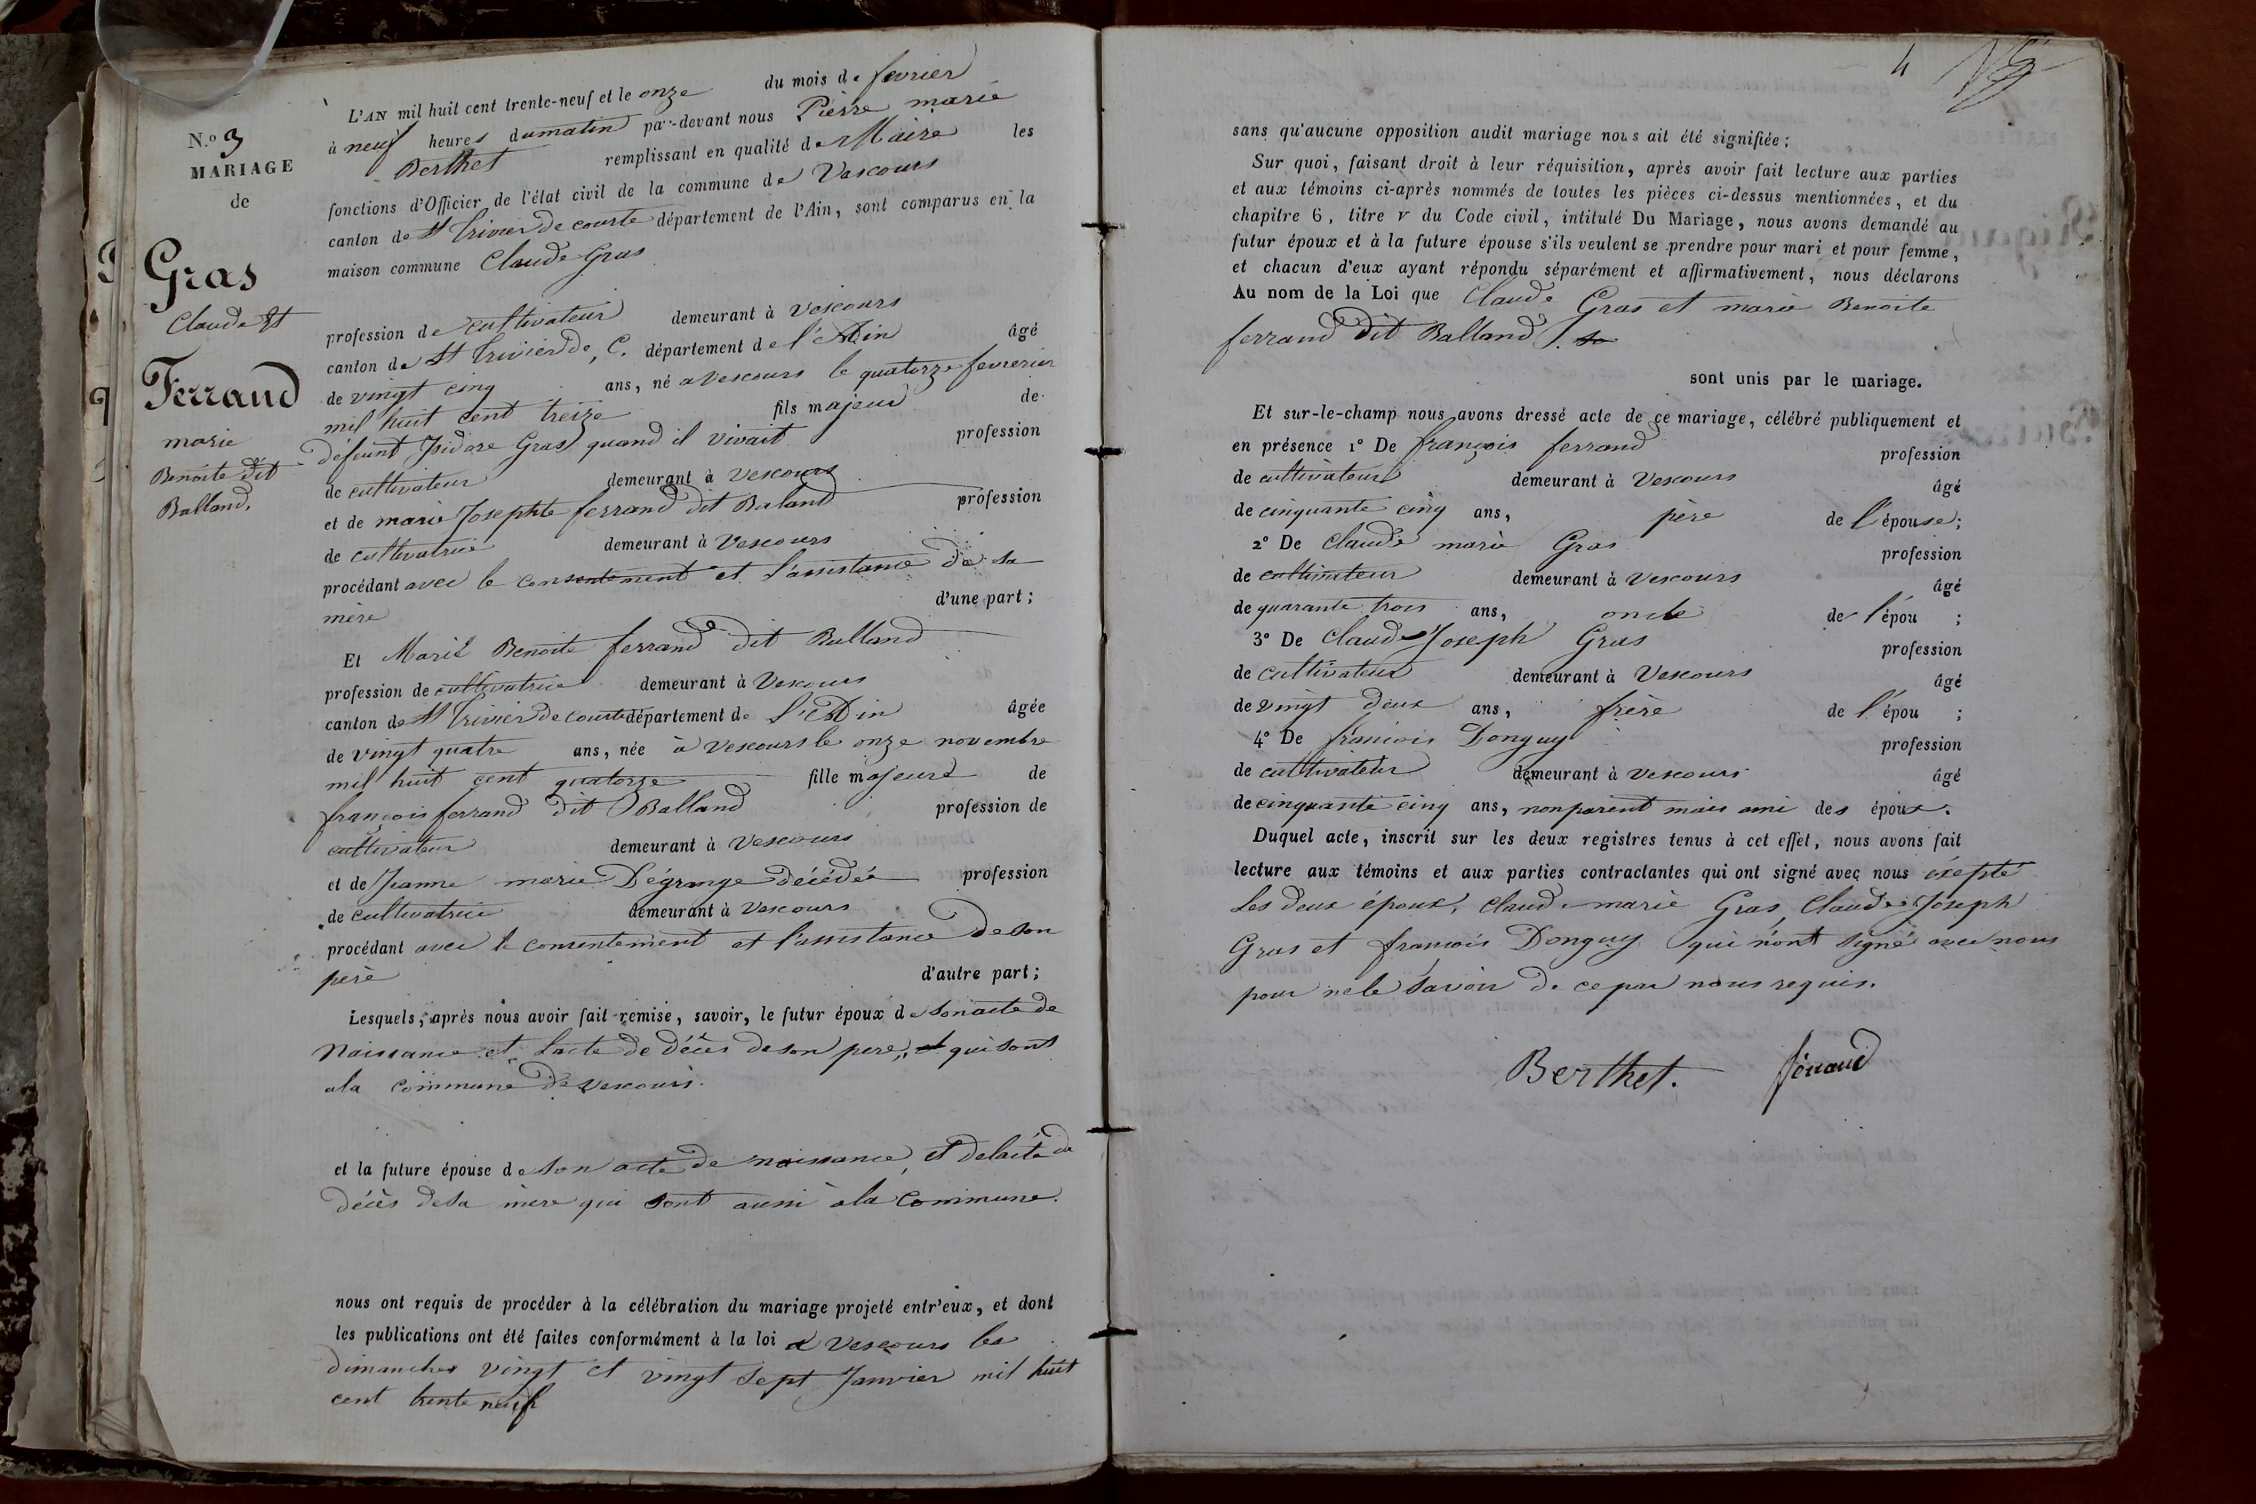 N.o 3
MARIAGE
de
Gras
Claude Et
Ferrand
marie
Benoite dit
Balland.
L'AN mil huit cent trente-neuf et le onze du mois de fevrier
à neuf heures dumatin par-devant nous Pièrre marie
Berthet remplissant en qualité de Maire les
fonctions d'Officier de l'état civil de la commune de Vescours
canton de St Trivier de courte département de l'Ain, sont comparus en la
maison commune Claude Gras
profession de cultivateur demeurant à Vescours
canton de St Trivier de C. département de l'Ain âgé
de vingt cinq ans, né a Vescours le quatorze fevrerier
mil huit cent treize fils majeur de
défunt Isidore Gras quand il vivait profession
de cultivateur demeurant à Vescours
et de marie Josephte ferrand dit Baland profession
de cultivatrice demeurant à Vescours
procédant avec le consentement et l'assistance de sa
mère d'une part;
Et Marie Benoite ferrand dit Balland
profession de cultivatrice demeurant à Vescours
canton de St Trivier de courte département de l'Ain âgée
de vingt quatre ans, née à Vescours le onze novembre
mil huit cent quatorze fille majeure de
françois ferrand dit Balland profession de
cultivateur demeurant à Vescours
et de Jeanne marie Dégrange décédée profession
de cultivatrice demeurant à Vescours
procédant avec le consentement et l'assistance de son
père d'autre part;
Lesquels, après nous avoir fait remise, savoir, le futur époux de son acte de
Naissance et l'acte de décès de son pere, et qui sont
a la commune de Vescours.
et la future épouse de son acte de naissance, et de lacte de
décès de sa mère qui sont aussi a la Commune.
nous ont requis de procéder à la célébration du mariage projeté entr'eux, et dont
les publications ont été faites conformément à la loi a Vescours les
dimanches vingt et vingt sept Janvier mil huit
cent trente neuf
4
sans qu'aucune opposition audit mariage nous ait été signifiée;
Sur quoi, faisant droit à leur réquisition, après avoir fait lecture aux parties
et aux témoins ci-après nommés de toutes les pièces ci-dessus mentionnées, et du
chapitre 6, titre v du Code civil, intitulé Du Mariage, nous avons demandé au
futur époux et à la future épouse s'ils veulent se prendre pour mari et pour femme,
et chacun d'eux ayant répondu séparément et affirmativement, nous déclarons
Au nom de la Loi que Claude Gras et marie Benoite
ferrand dit Balland
sont unis par le mariage.
Et sur-le-champ nous avons dressé acte de ce mariage, célébré publiquement et
en présence 1º De françois ferrand profession
de cultivateur demeurant à Vescours âgé
de cinquante cinq ans, père de l'épouse;
2º De Claude marie Gras profession
de cultivateur demeurant à Vescours âgé
de quarante trois ans, oncle de l'épou ;
3º De Claude Joseph Gras profession
de cultivateur demeurant à Vescours âgé
de vingt deux ans, frère de l'épou ;
4º De francois Donguy profession
de cultivateur demeurant à Vescours âgé
de cinquante cinq ans, non parent mais ami des époux.
Duquel acte, inscrit sur les deux registres tenus à cet effet, nous avons fait
lecture aux témoins et aux parties contractantes qui ont signé avec nous éxepté
Les deux époux, Claude marie Gras, Claude Joseph
Gras et francois Donguy qui n'ont signé avec nous
pour ne le savoir de ce par nous requis.
Berthet. férraud